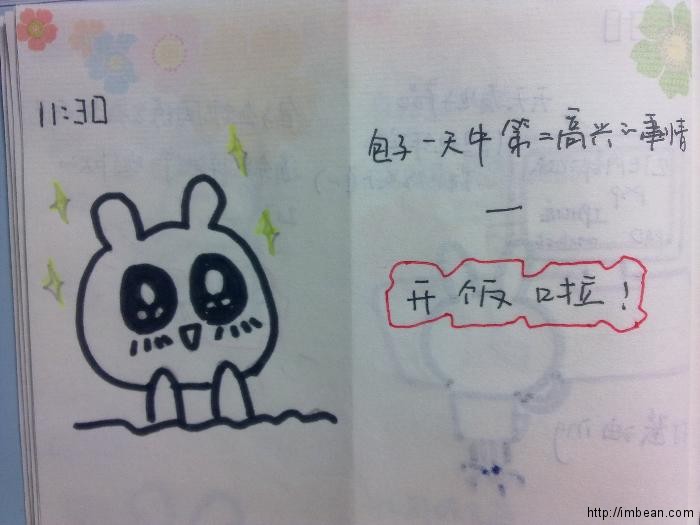 11:30
包子一天中第二高兴的事情
—
开饭啦!
http://imbean.com